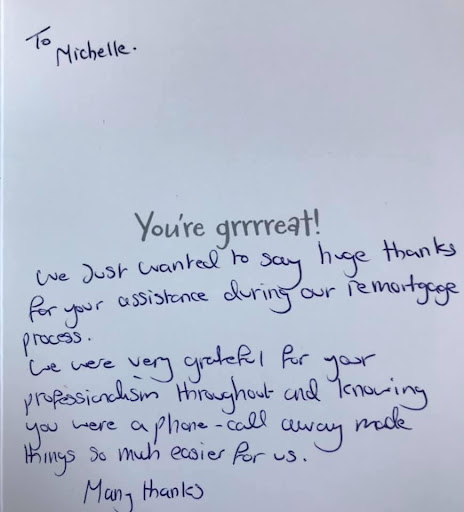 To
Michelle.
You're grrrreat!
We Just wanted to say huge thanks
for your assistance during our remortgage
process.
We were very grateful for your
professionalism throughout and knowing
you were a phone-call away made
things so much easier for us.
Many thanks